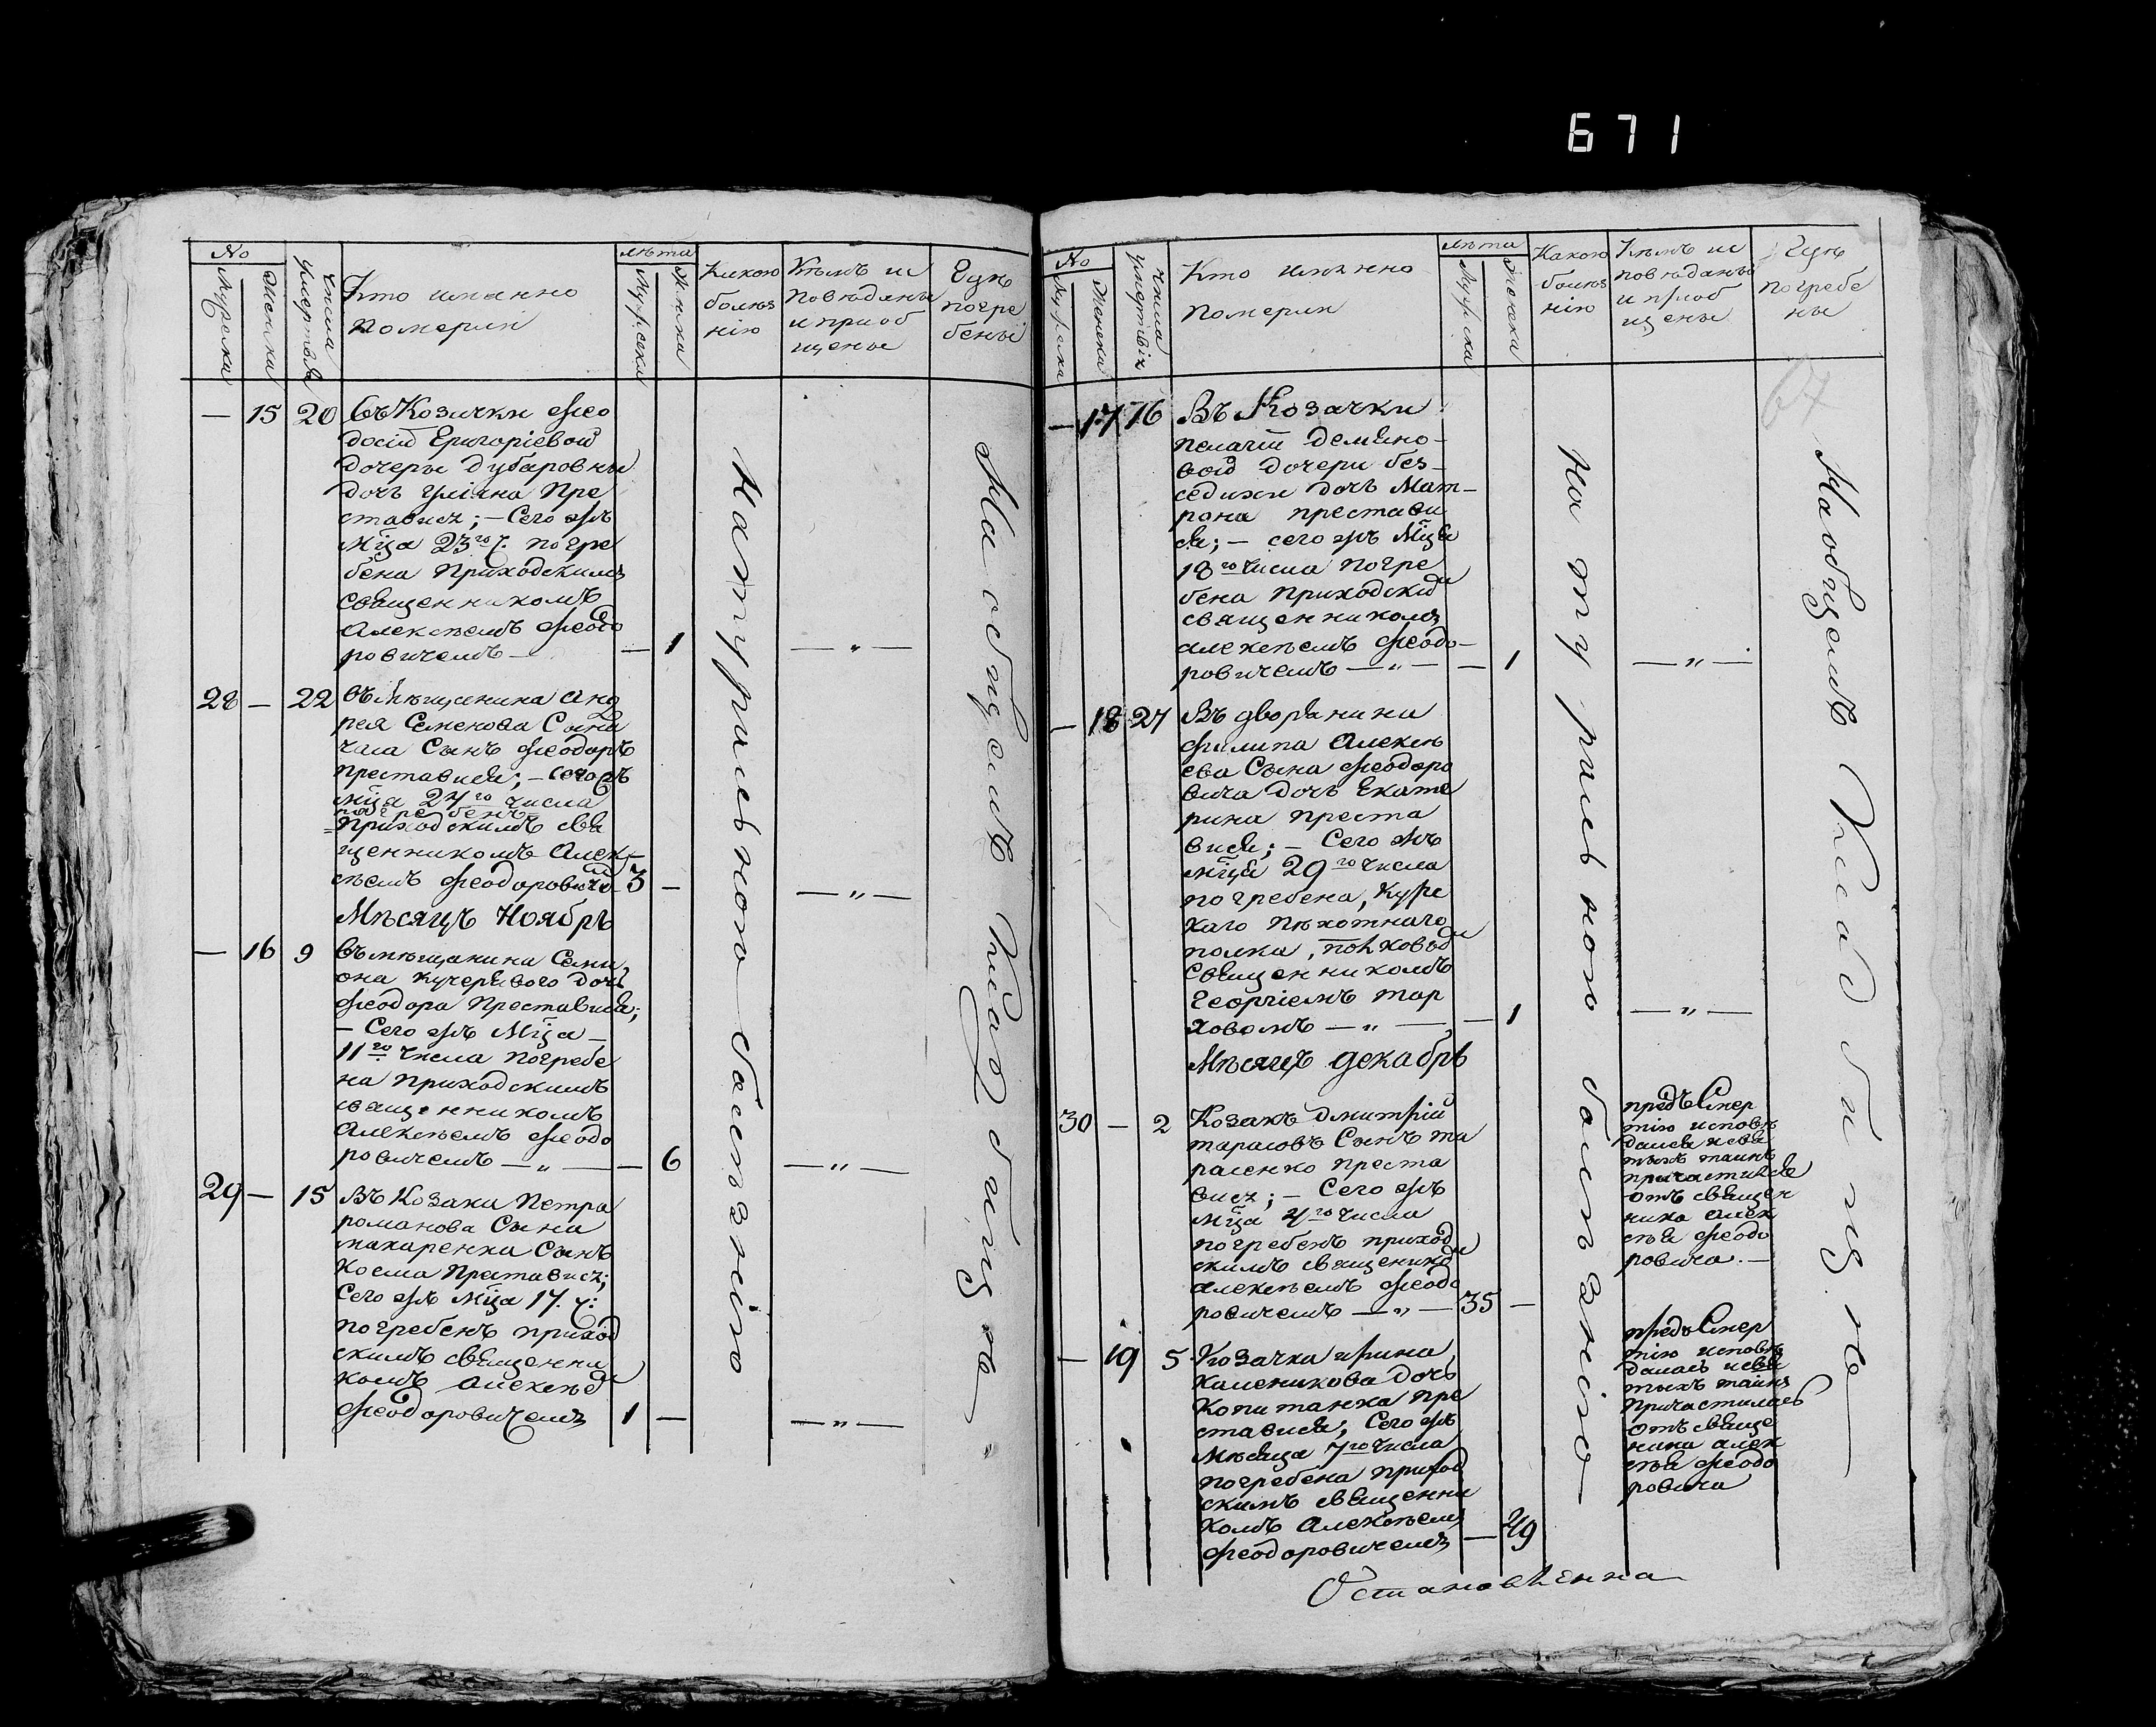 671
№
Мужеска
Женска
Числа умертвія
Кто имянно
померли
лѣта
Мужеска
Женска
Какою
болѣз
нію
Кѣмъ ис
повѣданы
и приоб
щены
Гдѣ
погре
бены
— 15 20 Въ Козачки Фео
досіи Григоріевой
дочеры Дубаровны
дочь Уліяна пре
ставись; — Сего жъ
мца 23го ч: погре
бена приходскимъ
священникомъ
Алексѣемъ Феодо
ровичемъ — — 1 — " —
28 — 22 Въ мѣщенина Анд
рея Семенова Сына
Сынъ Феодоръ
преставися; — сего жъ
мца 24го числа
погребенъ
приходскимъ свя
щенникомъ Алек
сѣемъ Феодоровичем 3 — — " —
Мѣсяцъ Ноябрь
— 16 9 Въ мѣщанина Семи
она Кучерявого дочь
Феодора преставися;
— Сего жъ мца —
11го числа погребе
на приходскимъ
священникомъ
Алексѣемъ Феодо
ровичемъ — " — — 6 — " —
29 — 15 Въ Козака Петра
романова Сына
макаренка Сынъ
Косма преставись;
Сего жъ мца 17. ч:
погребенъ приход
скимъ священни
комъ Алексѣем
Феодоровичемъ 1 — — " —
Натуральною болѣзнію
На общемъ Кладбищѣ
№
Мужеска
Женска
Числа умертвія
Кто имянно
померли
лѣта
Мужеска
Женска
Какою
болѣз
нію
Кѣмъ ис
повѣданы
и приоб
щены
Гдѣ
погребе
ны
67
— 17 16 Въ Козачки
пелагіи Демяно-
вой дочери без-
седихи дочь Мат-
рона престави
ся; — сего жъ Мца
18го числа погре
бена приходским
священникомъ
алексѣемъ Феодо-
ровичемъ — " — — 1 — " —
— 18 27 Въ дворянина
Филипа Алексѣ
ева Сына Феодоро
вича дочь Екате
рина преста
вися; — Сего жъ
мца 29го числа
погребена, Курс
каго пѣхотнаго
полка, полковым
священникомъ
Георгіемъ Тар
ховомъ — " — — 1 — " —
Мѣсяцъ декабрь
30 — 2 Козакъ Дмитрій
тарасовъ Сынъ та
расенко преста
вись; — Сего жъ
мца 4го числа
погребенъ приход
скимъ священиком
алексѣемъ Феодо
ровичемъ — " — 35 —
предъ Смер
тію исповѣ
дался и свя
тыхъ таинъ
причастился
отъ священ
ника алек
сѣя Феодо
ровича. —
— 19 5 Козачка ирина
Каленикова дочь
Копитанка пре
стависи; Сего жъ
Мѣсяца 7го числа
погребена приход
скимъ священни
комъ Алексѣемъ
Феодоровичемъ — 49
предъ Смер
тію исповѣ
далась и свя
тыхъ таинъ
причастилась
отъ священ
ника алек
сѣя Феодо
ровича
Натуральною болѣзнію
На общемъ Кладбищѣ